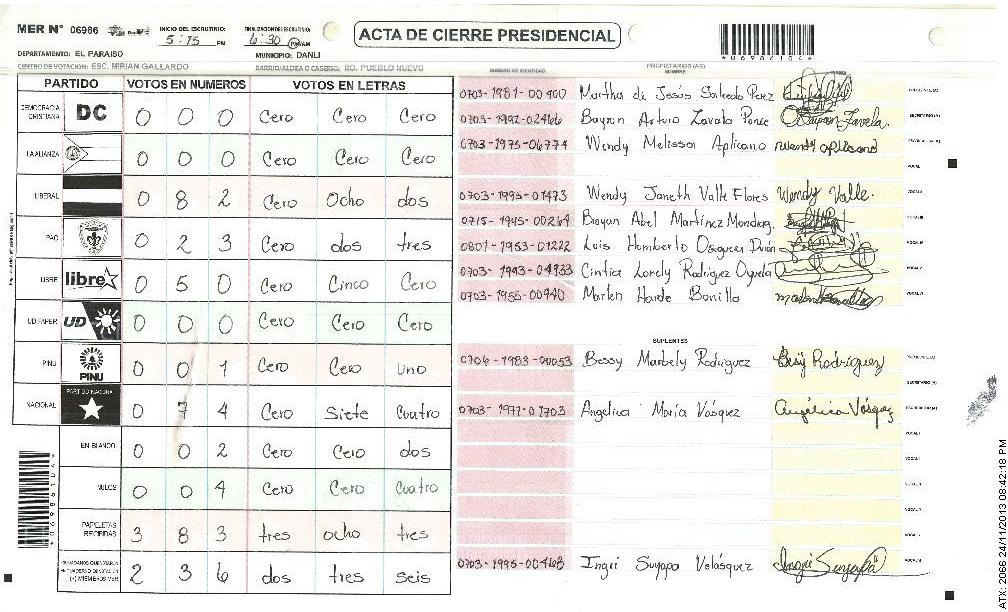 MER N° 06986
INICIO DEL ESCRUTINIO: 5:15 PM
FINALIZACION DEL ESCRUTINIO: 6:30 PM/AM
ACTA DE CIERRE PRESIDENCIAL
*06986104*
DEPARTAMENTO: EL PARAISO
MUNICIPIO: DANLI
CENTRO DE VOTACION: ESC. MIRIAN GALLARDO
BARRIO/ALDEA O CASERIO: BO. PUEBLO NUEVO
PARTIDO VOTOS EN NUMEROS VOTOS EN LETRAS
DEMOCRACIA CRISTIANA DC 0 0 0 Cero Cero Cero
LA ALIANZA 0 0 0 Cero Cero Cero
LIBERAL 0 8 2 Cero Ocho dos
PAC 0 2 3 Cero dos tres
LIBRE libre 0 5 0 Cero Cinco Cero
UD FAPER UD 0 0 0 Cero Cero Cero
PINU PINU 0 0 1 Cero Cero uno
NACIONAL PARTIDO NACIONAL 0 7 4 Cero Siete Cuatro
EN BLANCO 0 0 2 Cero Cero dos
NULOS 0 0 4 Cero Cero Cuatro
PAPELETAS RECIBIDAS 3 8 3 tres ocho tres
2 3 6 dos tres seis
NUMERO DE IDENTIDAD
PROPIETARIOS (AS)
NOMBRE
FIRMA
0703-1981-00900 Martha de Jesús Salcedo Perez
0703-1992-02466 Bayron Arturo Zavala Ponce
0703-1975-06774 Wendy Melissa Aplicano
0703-1995-01473 Wendy Janeth Valle Flores Wendy Valle.
0715-1945-00264 Brayan Abel Martínez
0801-1953-01222 Luis Humberto Oseguera
0703-1993-04933 Cintia Lorely Rodriguez
0703-1955-00940 Bonilla
SUPLENTES
0706-1983-00053 Bessy Marbely Rodriguez Besy Rodríguez
0703-1971-01703 Angelica María Vásquez Angélica Vásquez
0703-1995-00468 Ingri Suyapa Velásquez
*06986104*
ATX: 2066 24/11/2013 08:42:18 PM